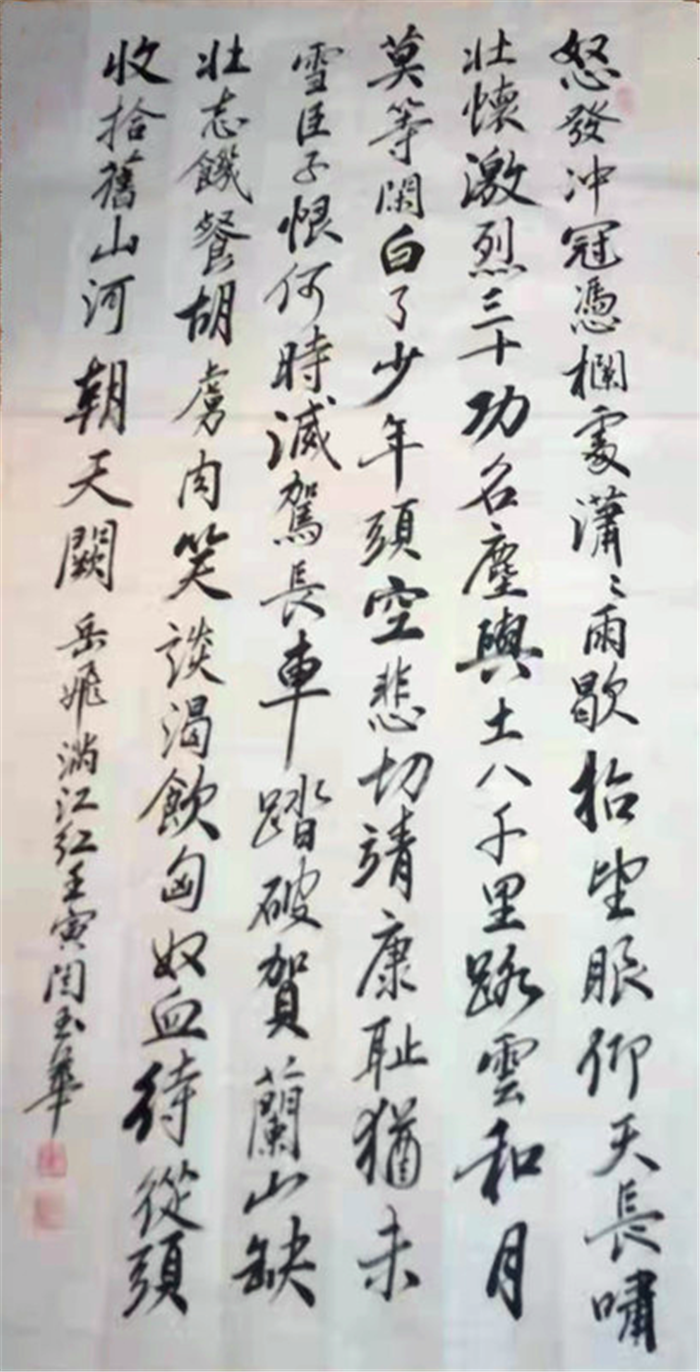 怒發冲冠憑欄處瀟〻雨歇抬望眼仰天長嘯
壯懷激烈三十功名塵與土八千里路雲和月
莫等閑白了少年頭空悲切靖康耻猶未
雪臣子恨何時滅駕長車踏破賀蘭山缺
壯志饑餐胡虜肉笑談渴飲匈奴血待從頭
收拾舊山河朝天闕 岳飛滿江红壬寅闫玉華